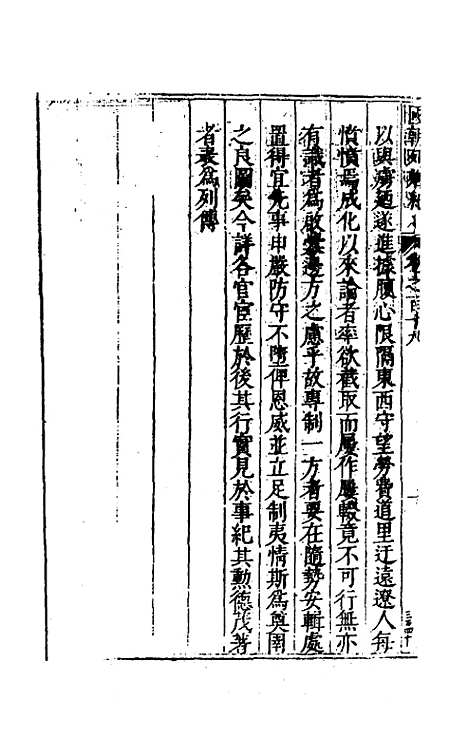 國朝典彙卷之百十九
以與虜廼遂進據腹心限隔東西守望勞費道里迂遠遼人每
憤憤焉成化以來論者率欲截取而屢作屢輟竟不可行無亦
有識者為啟釁邊方之慮乎故專制一方者要在隨勢安輯處
置得宜先事申嚴防守不墮俾恩威並立足制夷情斯為奠圉
之良圖矣今詳各官宦歷於後其行實見於事紀其勲德茂著
者表為列傳